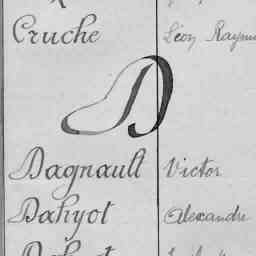 Cruche Léon Raym
D
Dagnault Victor
Dahyot Alexandre